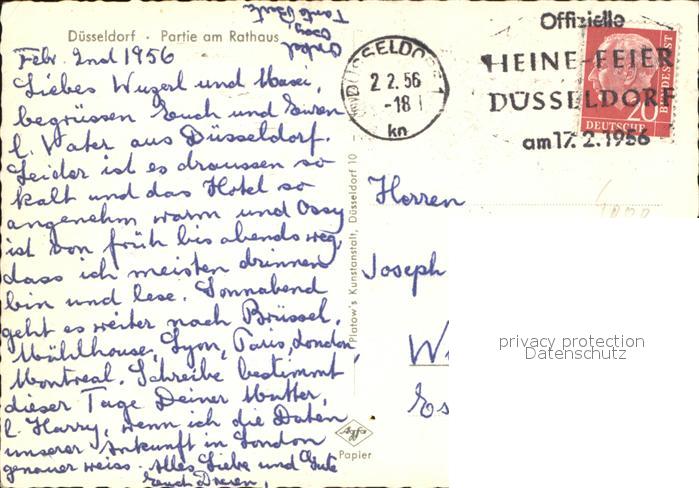 Düsseldorf · Partie am Rathaus
Febr. 2nd 1956
Liebes Wuzerl und Maxi,
begrüssen Euch und Euren
l. Vater aus Düsseldorf.
Leider ist es draussen so
kalt und das Hotel so
angenehm warm und Ossy
ist von früh bis abends weg,
dass ich meisten drinnen
bin und lese. Sonnabend
geht es weiter nach Brüssel,
Mühlhouse, Lyon, Paris, London,
Montreal. Schreibe bestimmt
dieser Tage Deiner Mutter,
l. Harry, wenn ich die Daten
unserer Ankunft in London
genauer weiss. Alles Liebe und Gute
Euch Dreien,
Onkel
Tante
Platow's Kunstanstalt, Düsseldorf 10
DÜSSELDORF 1
2 2. 56
-18
kn
Offizielle
HEINE-FEIER
DÜSSELDORF
am 17. 2. 1956
20
DEUTSCHE
BUNDESPOST
Herren
Joseph
W
Es
privacy protection
Datenschutz
Agfa
Papier